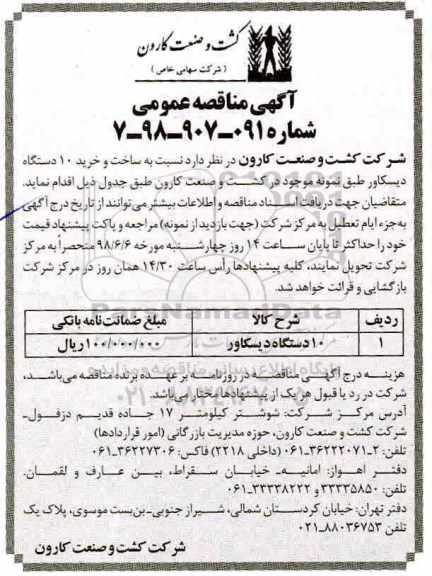 کشت و صنعت کارون
( شرکت سهامی خاص )
آگهی مناقصه عمومی
شماره ۰۹۱-۹۰۷-۹۸-۷
شرکت کشت و صنعت کارون در نظر دارد نسبت به ساخت و خرید ۱۰ دستگاه
دیسکاور طبق نمونه موجود در کشت و صنعت کارون طبق جدول ذیل اقدام نماید.
متقاضیان جهت دریافت اسناد مناقصه و اطلاعات بیشتر می‌توانند از تاریخ درج آگهی
به‌جزء ایام تعطیل به مرکز شرکت (جهت بازدید از نمونه) مراجعه و پاکت پیشنهاد قیمت
خود را حداکثر تا پایان ساعت ۱۴ روز چهارشنبه مورخه ۹۸/۶/۶ منحصراً به مرکز
شرکت تحویل نمایند، کلیه پیشنهادها رأس ساعت ۱۴/۳۰ همان روز در مرکز شرکت
بازگشایی و قرائت خواهد شد.
ردیف شرح کالا مبلغ ضمانت‌نامه بانکی
۱ ۱۰ دستگاه دیسکاور ۱۰۰/۰۰۰/۰۰۰ ریال
هزینه درج آگهی مناقصه در روزنامه بر عهده برنده مناقصه می‌باشد،
شرکت در رد یا قبول هر یک از پیشنهادها مختار می‌باشد.
آدرس مرکز شرکت: شوشتر کیلومتر ۱۷ جاده قدیم دزفول-
شرکت کشت و صنعت کارون، حوزه مدیریت بازرگانی (امور قراردادها)
تلفن: ۲-۳۶۲۲۲۰۷۱-۰۶۱ (داخلی ۲۲۱۸) فاکس: ۳۶۲۲۷۳۰۶-۰۶۱
دفتر اهواز: امانیه- خیابان سقراط، بین عارف و لقمان.
تلفن: ۳۳۳۳۵۸۵۰ و ۳۳۳۳۸۲۲۲-۰۶۱
دفتر تهران: خیابان کردستان شمالی، شیراز جنوبی- بن‌بست موسوی، پلاک یک
تلفن ۸۸۰۳۶۷۵۳-۰۲۱
شرکت کشت و صنعت کارون